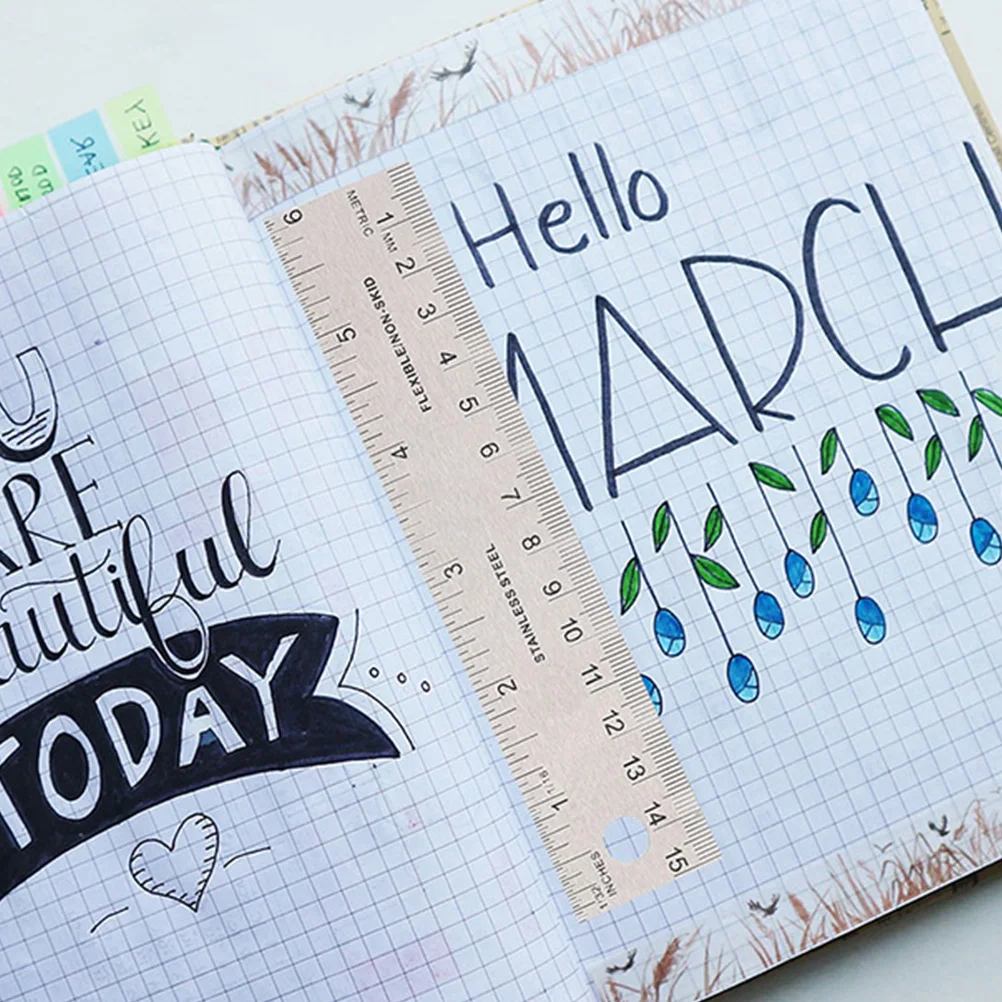 KEY
Hello
MARCH
U
ARE
TODAY
METRIC
1 MM 2 3 4 5 6 7 8 9 10 11 12 13 14 15
FLEXIBLE/NON-SKID
STAINLESS STEEL
6 5 4 3 2 1
1/16
1/32
INCHES